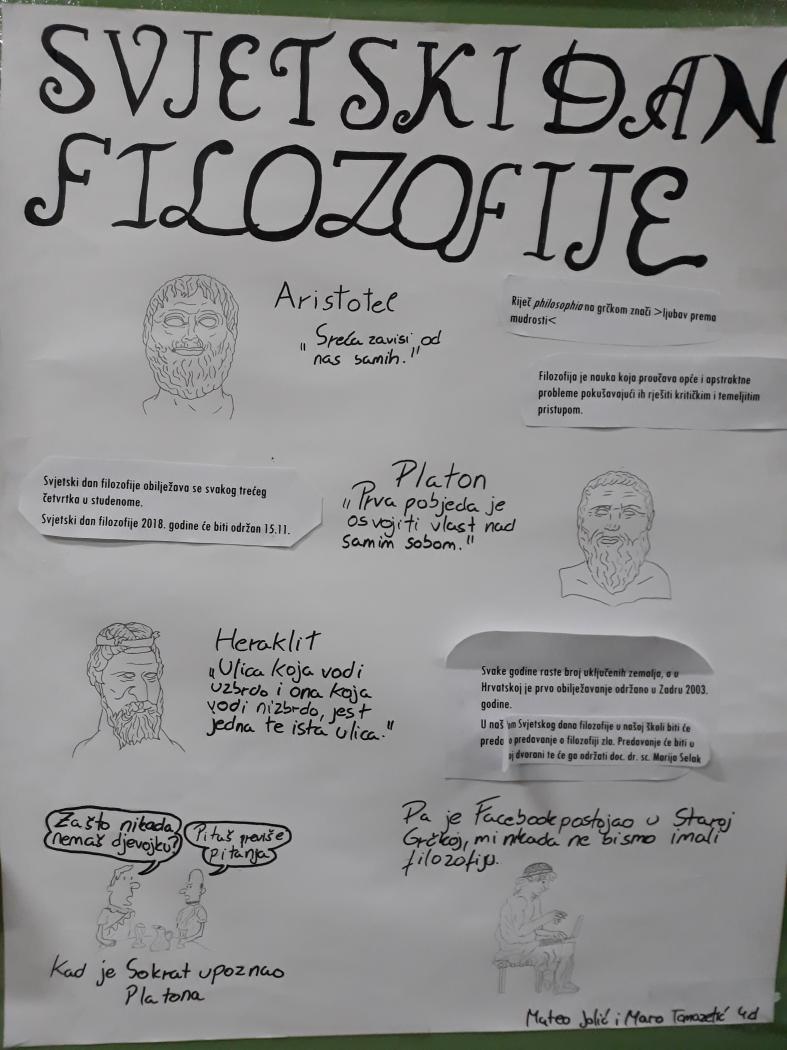 SVJETSKI DAN
FILOZOFIJE
Aristotel
"Sreća zavisi od
nas samih."
Riječ philosophia na grčkom znači >ljubav prema
mudrosti<
Filozofija je nauka koja proučava opće i apstraktne
probleme pokušavajući ih rješiti kritičkim i temeljitim
pristupom.
Svjetski dan filozofije obilježava se svakog trećeg
četvrtka u studenome.
Svjetski dan filozofije 2018. godine će biti održan 15.11.
Platon
"Prva pobjeda je
osvojiti vlast nad
samim sobom."
Heraklit
"Ulica koja vodi
uzbrdo i ona koja
vodi nizbrdo, jest
jedna te ista ulica."
Svake godine raste broj uključenih zemalja, a u
Hrvatskoj je prvo obilježavanje održano u Zadru 2003.
godine.
U naš Svjetskog dana filozofije u našoj školi biti će
predavanje o filozofiji zla. Predavanje će biti u
dvorani te će ga održati doc. dr. sc. Marija Selak
Zašto nikada
nemaš djevojku?
Pitaš previše
pitanja
Kad je Sokrat upoznao
Platona
Da je Facebook postojao u Staroj
Grčkoj, mi nikada ne bismo imali
filozofiju.
Mateo Jolić i Maro 4.d